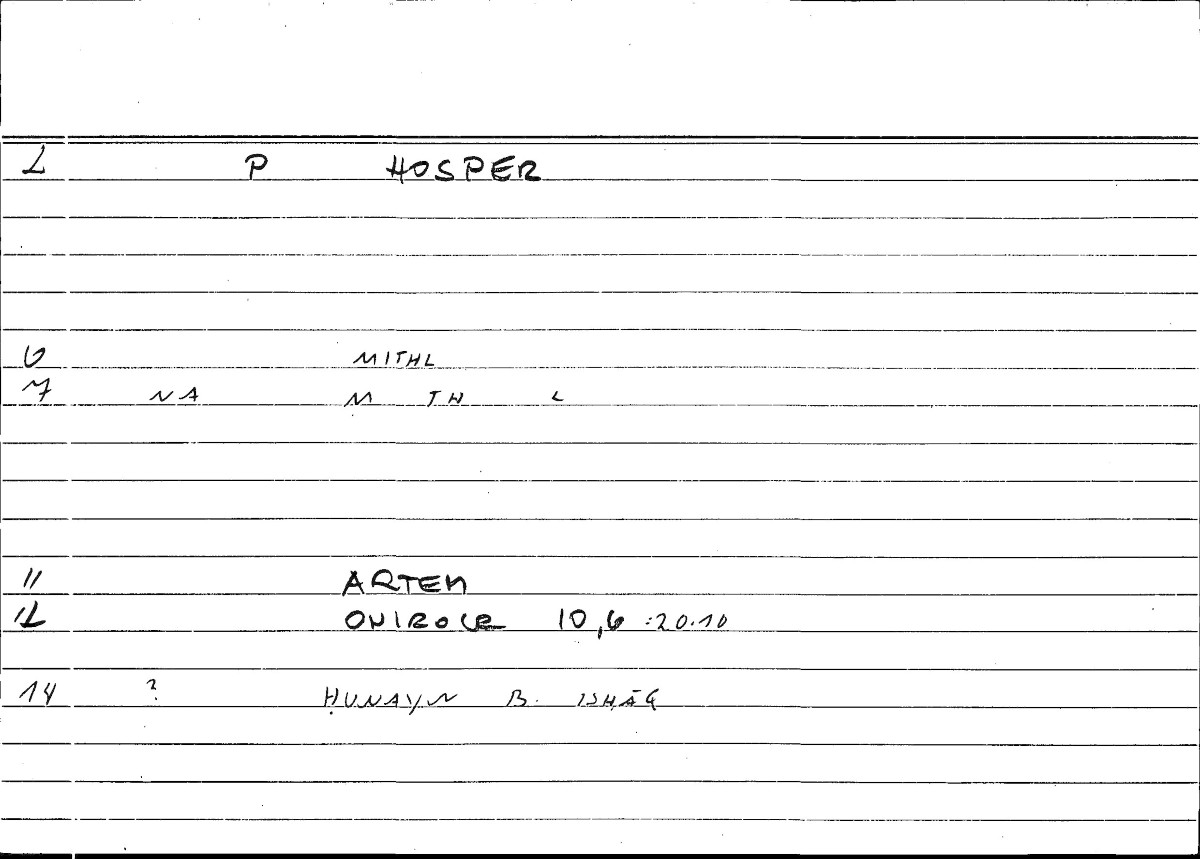 L P HOSPER
6 MITHL
7 NA M TH L
11 ARTEM
12 ONIROCR 10,6 :20.10
14 ? ḤUNAYN B. ISḤĀQ